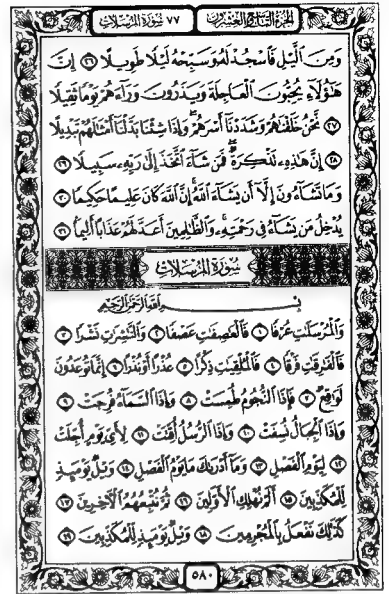 الجزء التاسع والعشرون
٧٧ سورة المرسلات
وَمِنَ ٱلَّيۡلِ فَٱسۡجُدۡ لَهُۥ وَسَبِّحۡهُ لَيۡلٗا طَوِيلًا ٢٦ إِنَّ
هَٰٓؤُلَآءِ يُحِبُّونَ ٱلۡعَاجِلَةَ وَيَذَرُونَ وَرَآءَهُمۡ يَوۡمٗا ثَقِيلٗا
٢٧ نَّحۡنُ خَلَقۡنَٰهُمۡ وَشَدَدۡنَآ أَسۡرَهُمۡۖ وَإِذَا شِئۡنَا بَدَّلۡنَآ أَمۡثَٰلَهُمۡ تَبۡدِيلًا
٢٨ إِنَّ هَٰذِهِۦ تَذۡكِرَةٞۖ فَمَن شَآءَ ٱتَّخَذَ إِلَىٰ رَبِّهِۦ سَبِيلٗا ٢٩
وَمَا تَشَآءُونَ إِلَّآ أَن يَشَآءَ ٱللَّهُۚ إِنَّ ٱللَّهَ كَانَ عَلِيمًا حَكِيمٗا ٣٠
يُدۡخِلُ مَن يَشَآءُ فِي رَحۡمَتِهِۦۚ وَٱلظَّٰلِمِينَ أَعَدَّ لَهُمۡ عَذَابًا أَلِيمَۢا ٣١
سورة المرسلات
بِسۡمِ ٱللَّهِ ٱلرَّحۡمَٰنِ ٱلرَّحِيمِ
وَٱلۡمُرۡسَلَٰتِ عُرۡفٗا ١ فَٱلۡعَٰصِفَٰتِ عَصۡفٗا ٢ وَٱلنَّٰشِرَٰتِ نَشۡرٗا ٣
فَٱلۡفَٰرِقَٰتِ فَرۡقٗا ٤ فَٱلۡمُلۡقِيَٰتِ ذِكۡرًا ٥ عُذۡرًا أَوۡ نُذۡرًا ٦ إِنَّمَا تُوعَدُونَ
لَوَٰقِعٞ ٧ فَإِذَا ٱلنُّجُومُ طُمِسَتۡ ٨ وَإِذَا ٱلسَّمَآءُ فُرِجَتۡ ٩
وَإِذَا ٱلۡجِبَالُ نُسِفَتۡ ١٠ وَإِذَا ٱلرُّسُلُ أُقِّتَتۡ ١١ لِأَيِّ يَوۡمٍ أُجِّلَتۡ
١٢ لِيَوۡمِ ٱلۡفَصۡلِ ١٣ وَمَآ أَدۡرَىٰكَ مَا يَوۡمُ ٱلۡفَصۡلِ ١٤ وَيۡلٞ يَوۡمَئِذٖ
لِّلۡمُكَذِّبِينَ ١٥ أَلَمۡ نُهۡلِكِ ٱلۡأَوَّلِينَ ١٦ ثُمَّ نُتۡبِعُهُمُ ٱلۡأٓخِرِينَ ١٧
كَذَٰلِكَ نَفۡعَلُ بِٱلۡمُجۡرِمِينَ ١٨ وَيۡلٞ يَوۡمَئِذٖ لِّلۡمُكَذِّبِينَ ١٩
٥٨٠